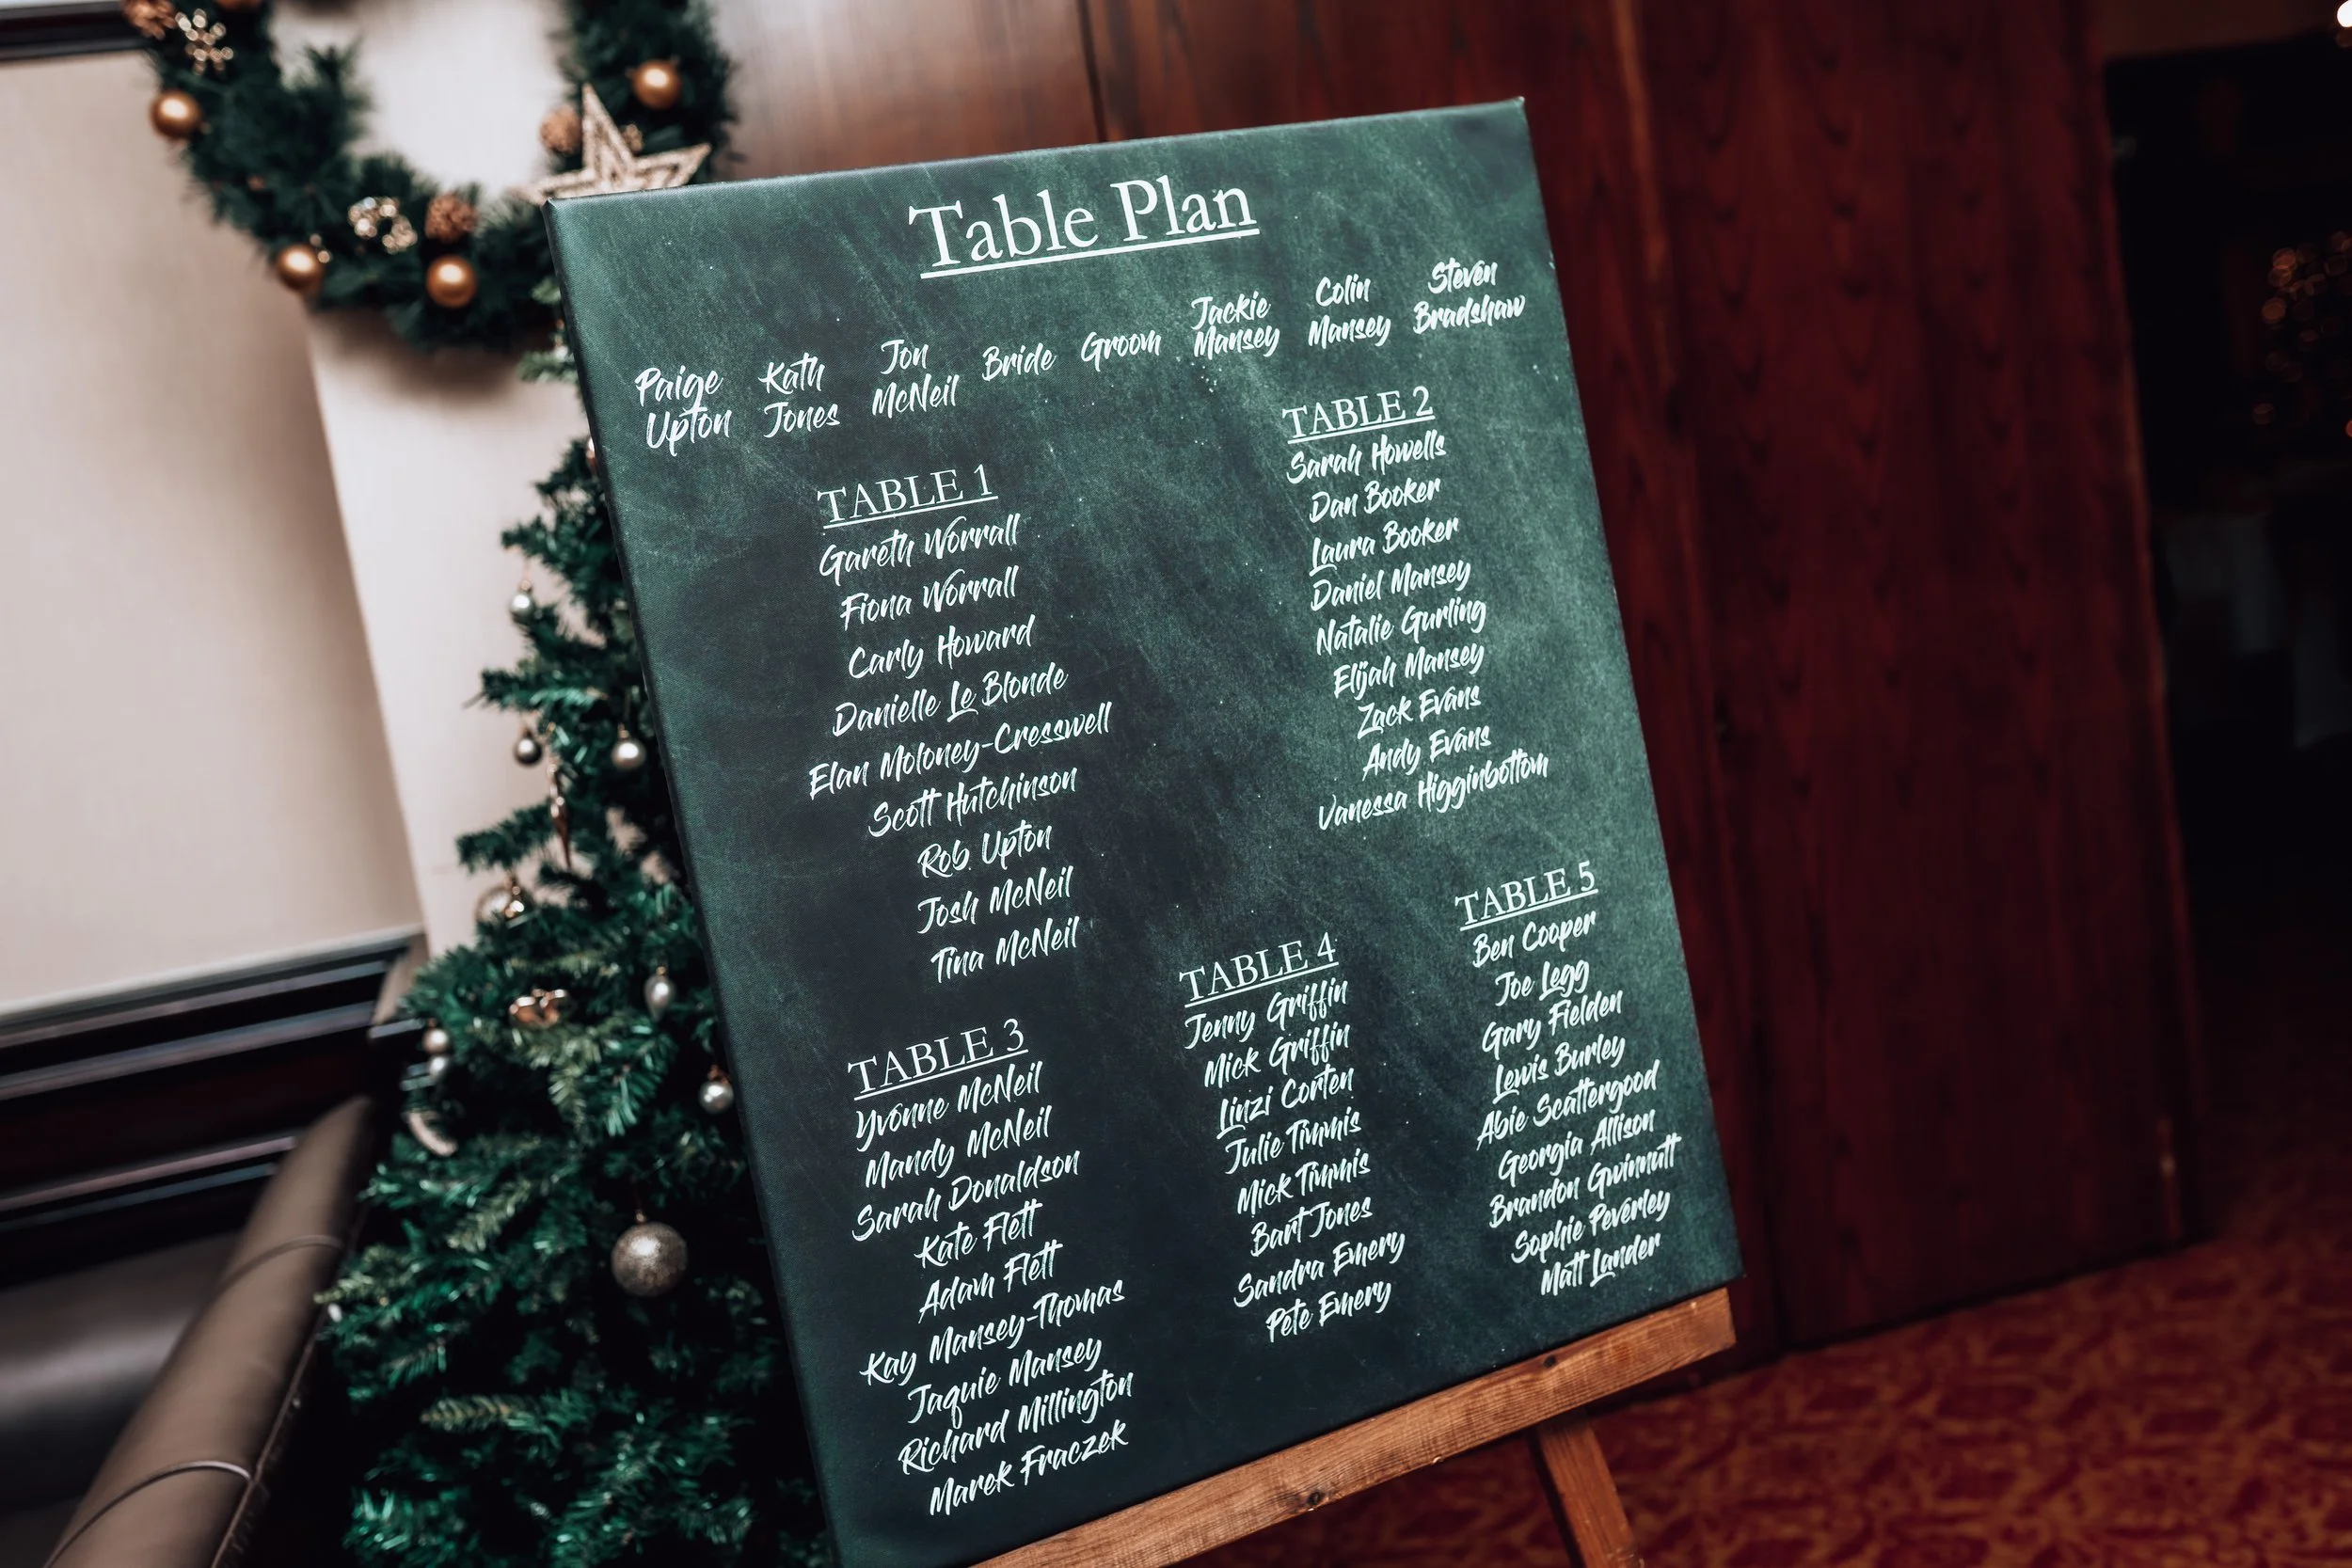 Table Plan
Paige Upton
Kath Jones
Jon McNeil
Bride
Groom
Jackie Mansey
Colin Mansey
Steven Bradshaw
TABLE 1
Gareth Worrall
Fiona Worrall
Carly Howard
Danielle Le Blonde
Elan Moloney-Cresswell
Scott Hutchinson
Rob Upton
Josh McNeil
Tina McNeil
TABLE 2
Sarah Howells
Dan Booker
Laura Booker
Daniel Mansey
Natalie Gurling
Elijah Mansey
Zack Evans
Andy Evans
Vanessa Higginbottom
TABLE 3
Yvonne McNeil
Mandy McNeil
Sarah Donaldson
Kate Flett
Adam Flett
Kay Mansey-Thomas
Jaquie Mansey
Richard Millington
Marek Fraczek
TABLE 4
Jenny Griffin
Mick Griffin
Linzi Corten
Julie Timmis
Mick Timmis
Bart Jones
Sandra Emery
Pete Emery
TABLE 5
Ben Cooper
Joe Legg
Gary Fielden
Lewis Burley
Abie Scattergood
Georgia Allison
Brandon Gwinnutt
Sophie Peverley
Matt Lander